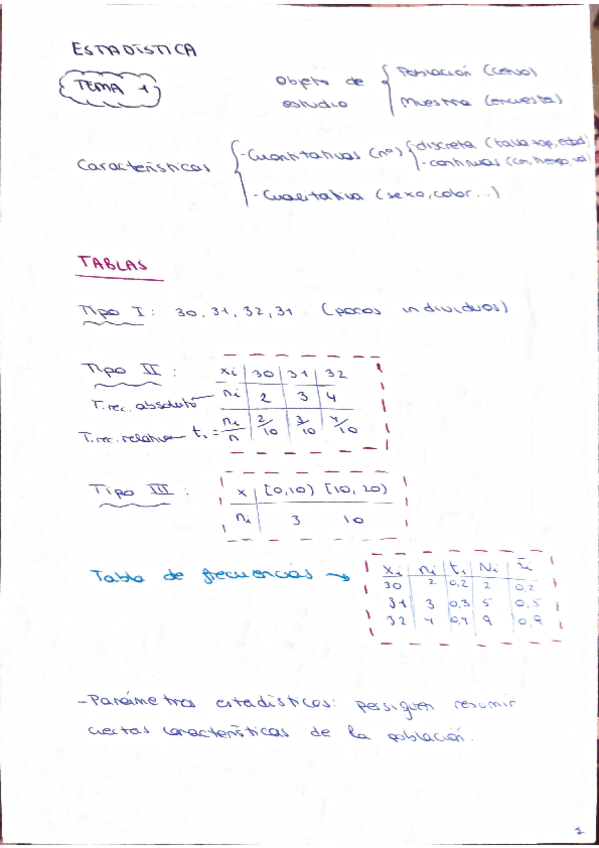 ESTADÍSTICA
TEMA 1
Objeto de estudio { Población (censo)
Muestra (encuesta)
Características { - Cuantitativas (nº) { - discreta (talla zap, edad)
- continuas (con tiempo,
- Cualitativa (sexo, color...)
TABLAS
Tipo I: 30, 31, 32, 31 (pocos individuos)
Tipo II: xi | 30 | 31 | 32
Frec. absoluta ni | 2 | 3 | 4
Frec. relativa fi = ni/n | 2/10 | 3/10 | 4/10
Tipo III: x | [0,10) [10, 20)
ni | 3 10
Tabla de frecuencias → xi | ni | fi | Ni | Fi
30 | 2 | 0,2 | 2 | 0,2
31 | 3 | 0,3 | 5 | 0,5
32 | 4 | 0,4 | 9 | 0,9
- Parámetros estadísticos: persiguen resumir
ciertas características de la población.
1